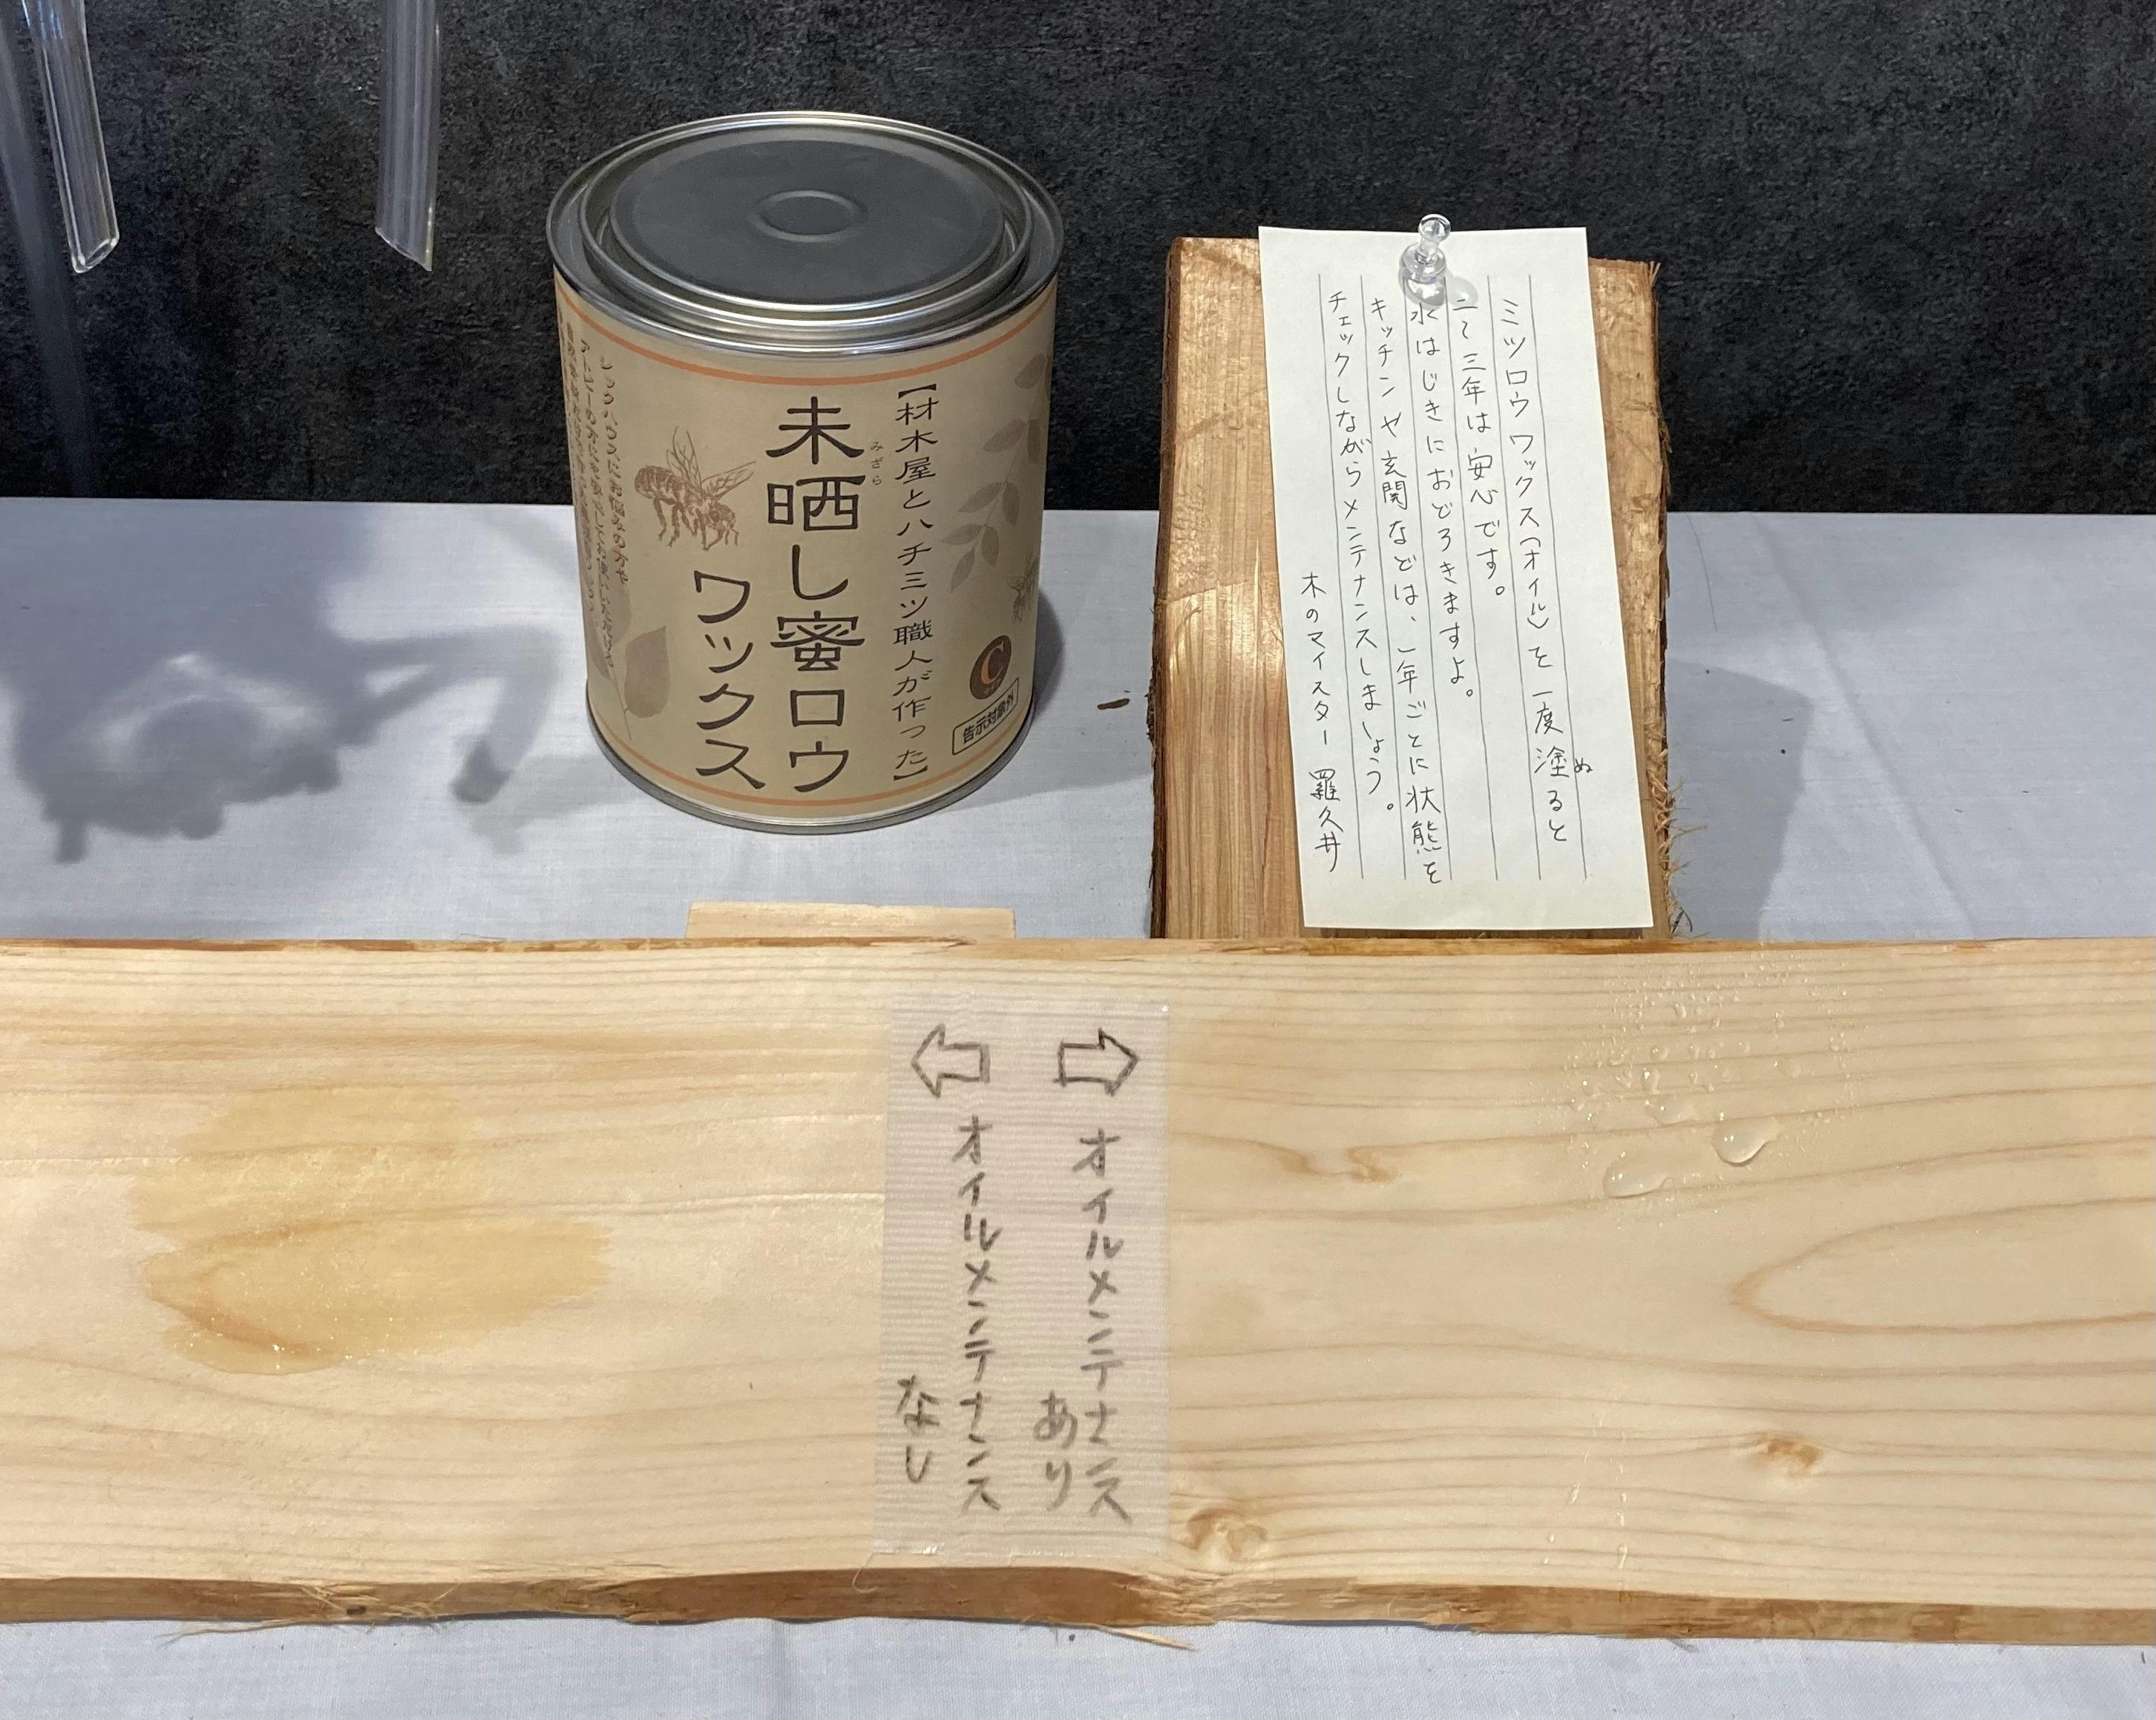 【材木屋とハチミツ職人が作った】
未晒し蜜ロウ
みざら
ワックス
C
告示対象外
ミツロウワックス(オイル)を一度塗ると
ぬ
二〜三年は安心です。
水はじきにおどろきますよ。
キッチンや玄関などは、一年ごとに状態を
チェックしながらメンテナンスしましょう。
木のマイスター 羅久井
オイルメンテナンス
あり
オイルメンテナンス
なし